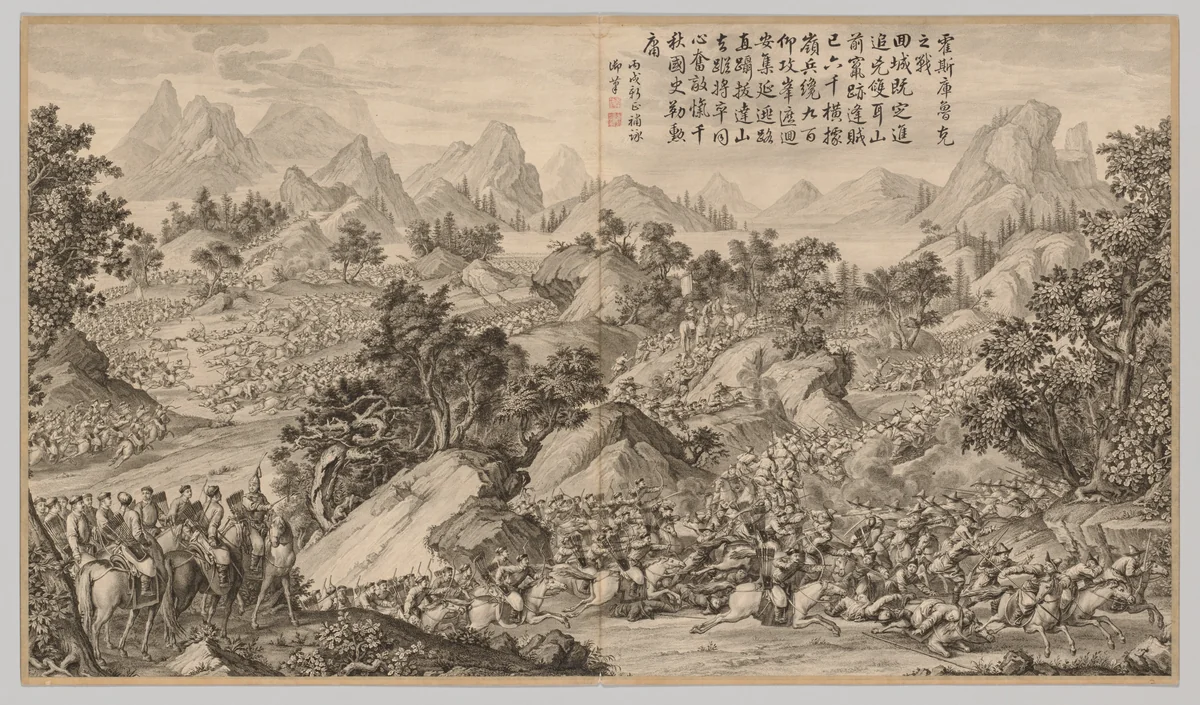 霍斯庫魯克
之戰
回城既定進
追兇雙耳山
前竄跡逢賊
已六千橫據
嶺兵纔九百
仰攻峯迴
安集延路
直躡拔達山
去蹤將卒同
心奮敵愾千
秋國史勒勳
庸
丙戌新正補詠
御筆